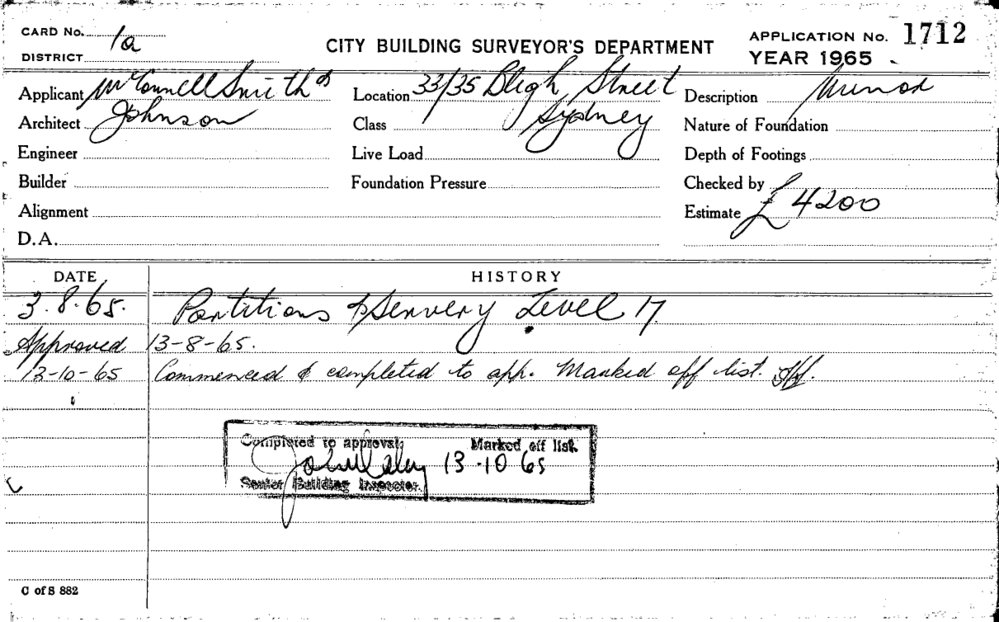 CARD No. 1a
CITY BUILDING SURVEYOR'S DEPARTMENT
APPLICATION No. 1712
DISTRICT
YEAR 1965
Applicant McConnell Smith &
Location 33/35 Bligh Street
Description Minor
Architect Johnson
Class Sydney
Nature of Foundation
Engineer
Live Load
Depth of Footings
Builder
Foundation Pressure
Checked by
Alignment
Estimate £ 4200
D.A.
DATE
HISTORY
3.8.65. Partitions & Servery Level 17.
Approved 13-8-65.
13-10-65 Commenced & completed to app. Marked off list.
Completed to approval;
Marked off list.
13-10 65
Senior Building Inspector.
C of S 882